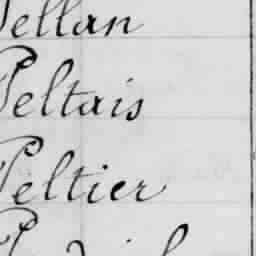 Pellan
Peltais
Peltier